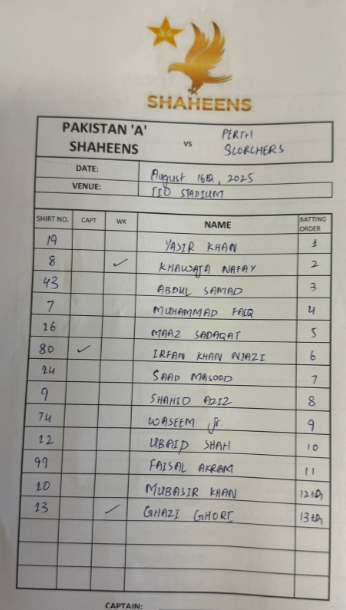 SHAHEENS
PAKISTAN 'A' SHAHEENS vs PERTH SCORCHERS
DATE: August 16th, 2025
VENUE: TIO STADIUM
SHIRT NO. CAPT WK NAME BATTING ORDER
19 YASIR KHAN 1
8 ✓ KHAWAJA NAFAY 2
43 ABDUL SAMAD 3
7 MUHAMMAD FAIQ 4
26 MAAZ SADAQAT 5
80 ✓ IRFAN KHAN NIAZI 6
24 SAAD MASOOD 7
9 SHAHID AZIZ 8
74 WASEEM Jr. 9
22 UBAID SHAH 10
99 FAISAL AKRAM 11
20 MUBASIR KHAN 12th
23 ✓ GHAZI GHORI 13th
CAPTAIN: